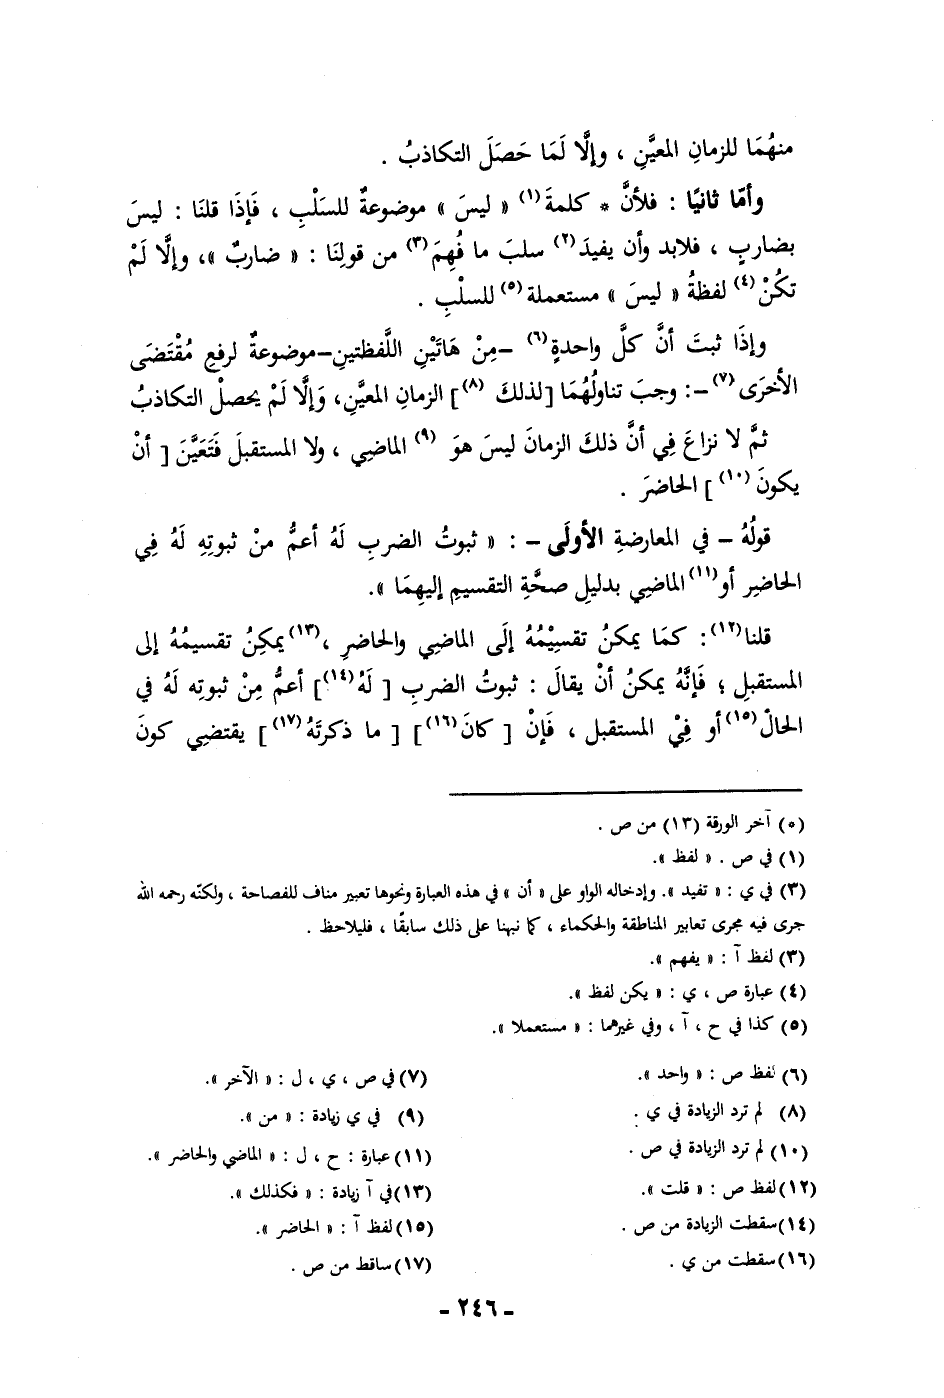 منهُمَا للزمانِ المعيَّنِ ، وإلَّا لَمَا حَصَلَ التكاذبُ .
وأمّا ثانيًا : فلأنَّ * كلمةَ (١) « ليسَ » موضوعةٌ للسَلْبِ ، فَإذَا قلنَا : ليسَ
بضاربٍ ، فلابد وأن يفيدَ (٢) سلبَ ما فُهِمَ (٣) من قولِنَا : « ضاربٌ »، وإلَّا لَمْ
تكُنْ (٤) لفظةُ « ليسَ » مستعملة (٥) للسلْبِ .
وإذَا ثبتَ أنَّ كلَّ واحدةٍ (٦) –مِنْ هَاتَيْنِ اللَّفظتينِ–موضوعةٌ لرفعِ مُقْتَضَى
الأخرَى (٧)–: وجبَ تناولُهُمَا [لذلكَ (٨)] الزمانِ المعيَّنِ، وَإلَّا لَمْ يحصلْ التكاذبُ
ثمَّ لا نزاعَ فِي أنَّ ذلكَ الزمانَ ليسَ هوَ (٩) الماضِي ، ولا المستقبلَ فَتَعَيَّنَ [ أنْ
يكونَ (١٠) ] الحاضرَ .
قولُهُ – في المعارضةِ الأولَى – : « ثبوتُ الضربِ لَهُ أعمُّ منْ ثبوتِهِ لَهُ فِي
الحاضِرِ أو (١١) الماضِي بدليلِ صحَّةِ التقسيمِ إليهِمَا ».
قلنا (١٢): كمَا يمكنُ تقسيْمُهُ إلَى الماضِي والحاضرِ ،(١٣) يمكِنُ تقسيمُهُ إلى
المستقبلِ ؛ فَإنَّهُ يمكنُ أنْ يقالَ : ثبوتُ الضربِ [ لَهُ (١٤)] أعمُّ مِنْ ثبوتِه لَهُ في
الحالْ (١٥) أو فِيْ المستقبل ، فَإنْ [ كانَ (١٦)] [ ما ذكرتَهُ (١٧) ] يقتضِي كونَ
(*) آخر الورقة (١٣) من ص .
(١) في ص . « لفظ ».
(٣) في ي : « تفيد ». وإدخاله الواو على « أن » في هذه العبارة ونحوها تعبير مناف للفصاحة ، ولكنّه رحمه الله
جرى فيه مجرى تعابير المناطقة والحكماء ، كما نبهنا على ذلك سابقًا ، فليلاحظ .
(٣) لفظ آ : « يفهم ».
(٤) عبارة ص ، ي : « يكن لفظ ».
(٥) كذا في ح ، آ ، وفي غيرهما : « مستعملا ».
(٦) لفظ ص : « واحد ».
(٧) في ص ، ي ، ل : « الآخر ».
(٨) لم ترد الزيادة في ي .
(٩) في ي زيادة : « من ».
(١٠) لم ترد الزيادة في ص .
(١١) عبارة : ح ، ل : « الماضي والحاضر ».
(١٢) لفظ ص : « قلت ».
(١٣) في آ زيادة : « فكذلك ».
(١٤) سقطت الزيادة من ص .
(١٥) لفظ آ : « الحاضر ».
(١٦) سقطت من ي .
(١٧) ساقط من ص .
– ٢٤٦ –